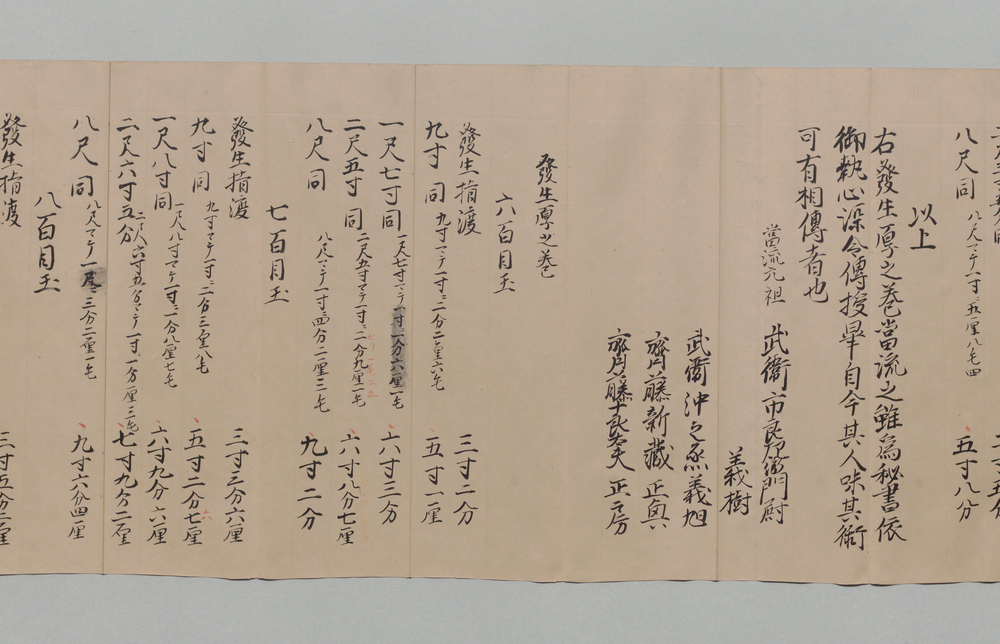 八尺同 八尺ニテ一寸ニ五厘八毛四 五寸八分
以上
右發生厚之巻當流之雖為秘書依
御執心深令傳授畢自今其人味其術
可有相傳者也
當流元祖 武衛市良左衛門尉
義樹
武衛沖之丞義旭
齊藤新蔵正真
齊藤 正房
發生厚之巻
六百目玉
發生指渡 三寸二分
九寸同 九寸ニテ一寸ニ二分二厘六毛 五寸一厘
一尺七寸同 一尺七寸ニテ一寸ニ一分六厘一毛 六寸三分
二尺五寸同 二尺五寸ニテ一寸ニ二分九厘一毛 六寸八分七厘
八尺同 八尺ニテ一寸ニ四分二厘三毛 九寸二分
七百目玉
發生指渡 三寸三分六厘
九寸同 九寸ニテ一寸ニ二分三厘八毛 五寸二分七厘
一尺八寸同 一尺八寸ニテ一寸ニ一分八厘七毛 六寸九分六厘
二尺六寸五分 二尺六寸五分ニテ一寸ニ一分一厘三毛 七寸九分二厘
八尺同 八尺ニテ一尺ニ三分二厘一毛 九寸六分四厘
八百目玉
發生指渡 三寸五分二厘